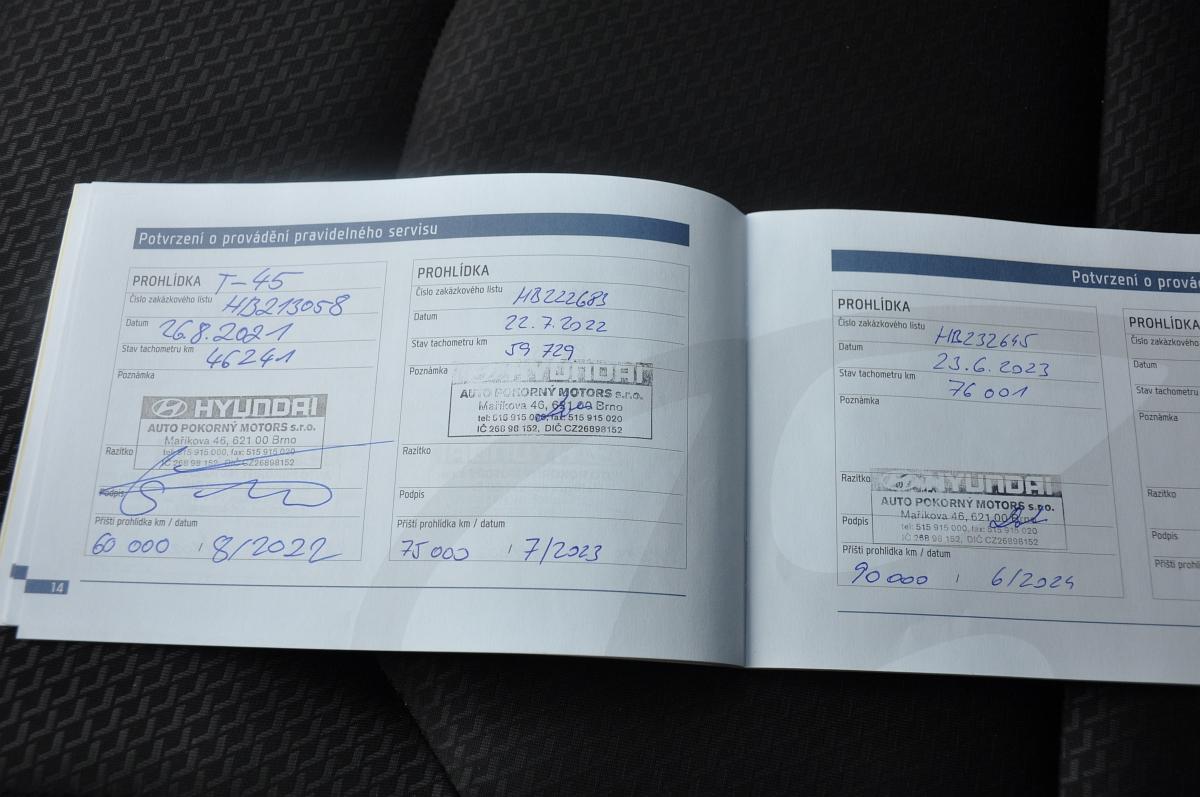 Potvrzení o provádění pravidelného servisu
PROHLÍDKA T-45
Číslo zakázkového listu HB213058
Datum 26.8.2021
Stav tachometru km 46241
Poznámka
HYUNDAI
AUTO POKORNÝ MOTORS s.r.o.
Maříkova 46, 621 00 Brno
tel: 515 915 000, fax: 515 915 020
IČ 268 98 152, DIČ CZ26898152
Razítko
Podpis
Příští prohlídka km / datum
60 000 / 8/2022
14
PROHLÍDKA
Číslo zakázkového listu HB222683
Datum 22.7.2022
Stav tachometru km 59 729
Poznámka
HYUNDAI
AUTO POKORNÝ MOTORS s.r.o.
Maříkova 46, 621 00 Brno
tel: 515 915 000, fax: 515 915 020
IČ 268 98 152, DIČ CZ26898152
Razítko
Podpis
Příští prohlídka km / datum
75 000 / 7/2023
Potvrzení o
PROHLÍDKA
Číslo zakázkového listu HB232645
Datum 23.6.2023
Stav tachometru km 76 001
Poznámka
Razítko
HYUNDAI
AUTO POKORNÝ MOTORS s.r.o.
Maříkova 46, 621 00 Brno
tel: 515 915 000, fax: 515 915 020
IČ 268 98 152, DIČ CZ26898152
Podpis
Příští prohlídka km / datum
90 000 / 6/2024
PROHLÍDKA
Číslo zakázkového
Datum
Stav tachometru
Poznámka
Razítko
Podpis
Příští